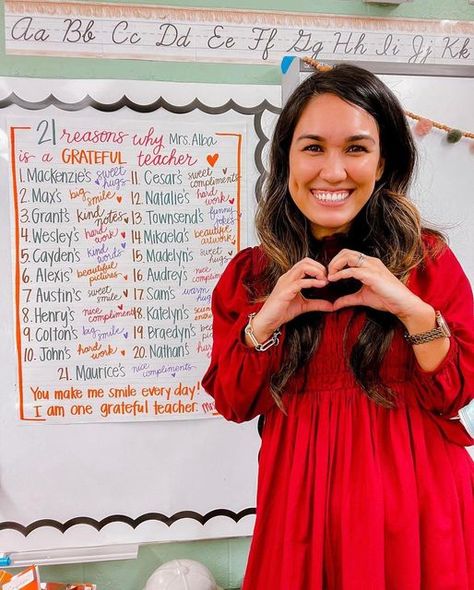 Aa Bb Cc Dd Ee Ff Gg Hh Ii Jj Kk
21 reasons why Mrs. Alba
is a GRATEFUL teacher
1. Mackenzie's sweet hugs
2. Max's big smile
3. Grant's kind notes
4. Wesley's hard work
5. Cayden's kind words
6. Alexis' beautiful pictures
7. Austin's sweet smile
8. Henry's nice compliments
9. Colton's big smile
10. John's hard work
11. Cesar's sweet compliments
12. Natalie's hard work
13. Townsend's funny jokes
14. Mikaela's beautiful artwork
15. Madelyn's sweet
16. Audrey's nice
17. Sam's warm hugs
18. Katelyn's
19. Braedyn's
20. Nathan's hard
21. Maurice's nice compliments
You make me smile every day!
I am one grateful teacher.